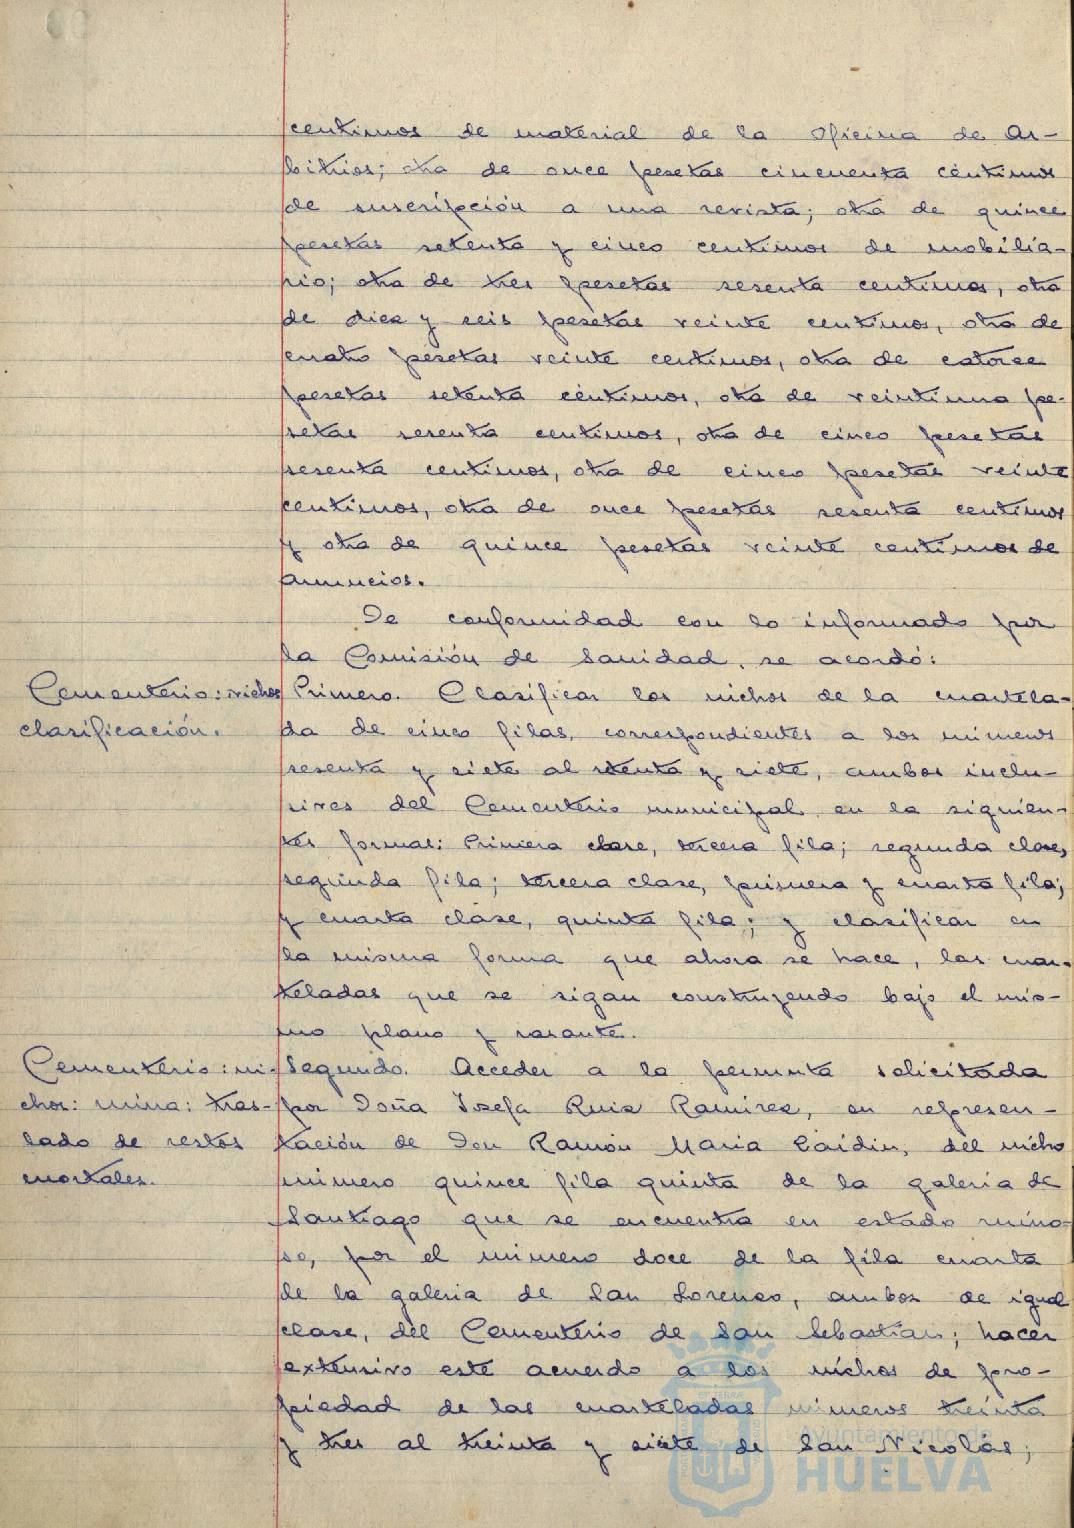 centimos de material de la oficina de Ar-
bitrios; otra de once pesetas cincuenta centimos
de suscripción a una revista; otra de quince
pesetas setenta y cinco centimos de mobilia-
rio; otra de tres pesetas sesenta centimos, otra
de diez y seis pesetas veinte centimos, otra de
cuatro pesetas veinte centimos, otra de catorce
pesetas setenta centimos, otra de veintiuna pe-
setas sesenta centimos, otra de cinco pesetas
sesenta centimos, otra de cinco pesetas veinte
centimos, otra de once pesetas sesenta centimos
y otra de quince pesetas veinte centimos de
anuncios.
De conformidad con lo informado por
la Comisión de Sanidad, se acordó:
Cementerio: nichos
clasificación.
Primero. Clasificar los nichos de la cuartela-
da de cinco filas, correspondientes a los numeros
sesenta y siete al setenta y siete, ambos inclu-
sives del Cementerio municipal en la siguien-
tes formas: Primera clase, tercera fila; segunda clase,
segunda fila; tercera clase, primera y cuarta fila;
y cuarta clase, quinta fila; y clasificar en
la misma forma que ahora se hace, las cuar-
teladas que se sigan construyendo bajo el mis-
mo plano y rasante.
Cementerio: ni-
chos: ruina: tras-
lado de restos
mortales.
Segundo. Acceder a la permuta solicitada
por Doña Josefa Ruiz Ramirez, en represen-
tación de Don Ramón Maria del nicho
numero quince fila quinta de la galeria de
Santiago que se encuentra en estado ruino-
so, por el numero doce de la fila cuarta
de la galeria de San Lorenzo, ambos de igual
clase, del Cementerio de San Sebastian; hacer
extensivo este acuerdo a los nichos de pro-
piedad de las cuarteladas numeros treinta
y tres al treinta y siete de San Nicolás;
Ayuntamiento de
HUELVA